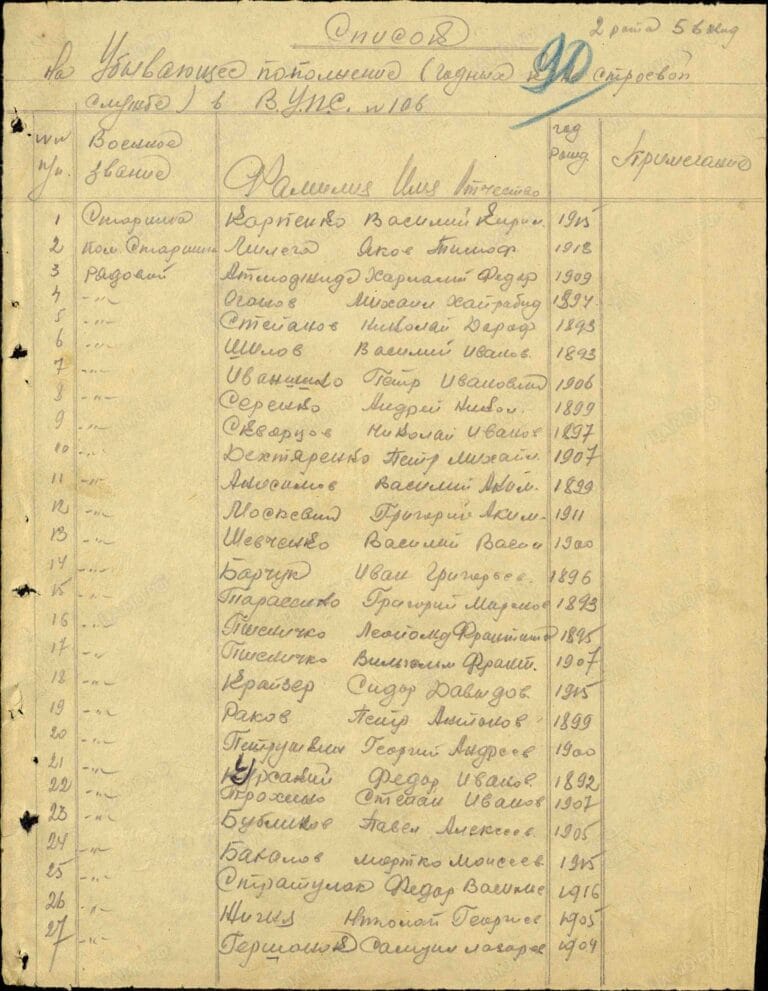 Список
2 рота 5 взвод
на Убывающее пополнение (годных к не строевой
90
службе) в В.У.П.С. №106
№№ п/п. Военное звание Фамилия Имя Отчество год рожд. Примечание
1 Старшина Карпенко Василий Кирил. 1915
2 пом. Старшин Яков Тимоф. 1918
3 рядовой Харлампий Федор 1909
4 -"- Михаил 1897
5 -"- Степанов Николай Дораф 1893
6 -"- Шилов Василий Иванов. 1893
7 -"- Иващенко Петр Иванович 1906
8 -"- Серенко Андрей Никол. 1899
9 -"- Скворцов Николай Иванов 1897
10 -"- Дехтяренко Петр Михайл. 1907
11 -"- Анисимов Василий Аким. 1899
12 -"- Москевич Григорий Аким. 1911
13 -"- Шевченко Василий Васил 1900
14 -"- Барчук Иван Григорьев. 1896
15 -"- Тарасенко Григорий Марков 1893
16 -"- Пшеничко Леопольд 1895
17 -"- Пшеничко Вильгельм Франт. 1907
18 -"- Крайзер Сидор Давидов. 1915
19 -"- Раков Петр Антонов 1899
20 -"- Петрушевич Георгий Андреев 1900
21 -"- Федор Иванов. 1892
22 -"- Трохимо Степан Иванов 1907
23 -"- Бубликов Павел Алексеев. 1905
24 -"- Бакалов Мортко Моисеев. 1915
25 -"- Стратулак Федор Василье 1916
26 -"- Николай Георгие 1905
27 -"- Гершонов Самуил Лазарев 1904